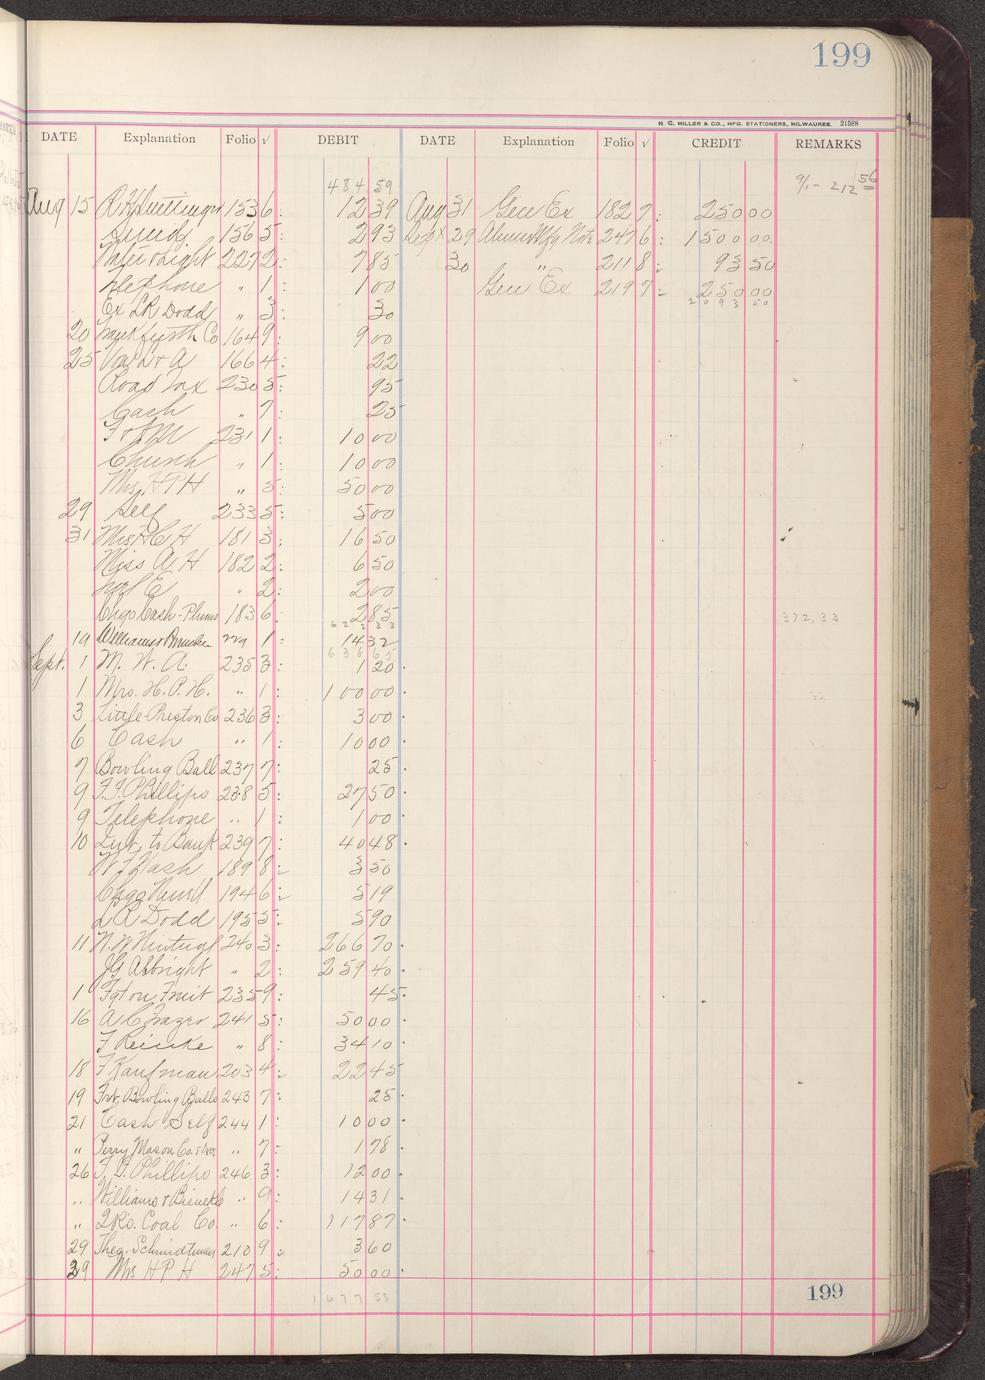 199
H. C. MILLER & CO., MFG. STATIONERS, MILWAUKEE. 21588
DATE Explanation Folio √ DEBIT DATE Explanation Folio √ CREDIT REMARKS
484 59 9/1- 212 56
Aug 15 153 6: 12 39 Aug 31 Gen Ex 182 7: 250 00
Sundy 156 5: 2 93 Sept 29 Alum Mfg Note 247 6: 1500 00
Water & Light 227 2: 7 85 30 " 211 8: 93 50
Telephone " 1: 1 00 Gen Ex 219 7: 250 00
Ex LR Dodd " 3: 30 2093 50
20 Frankfurth Co 164 9: 9 00
25 166 4: 22
Road Tax 230 5: 95
Cash " 7: 25
231 1: 10 00
Church " 1: 10 00
Mrs HPH " 5: 50 00
29 Self 233 5: 5 00
31 Mrs H C H 181 3: 16 50
Miss A H 182 2: 6 50
" 2: 2 00
Chgo Cash - Plums 183 6: 2 85
622 33 372.33
19 Williams & Bieneke 229 1: 14 32
636 65
Sept. 1 M. W. A. 235 3: 1 20
1 Mrs. H. P. H. " 1: 100 00
3 Little-Preston Co 236 3: 3 00
6 Cash " 1: 10 00
7 Bowling Ball 237 7: 25
9 F. J. Phillips 238 5: 27 50
9 Telephone " 1: 1 00
10 Int. to Bank 239 7: 40 48
W F Nash 189 8: 3 50
194 6: 5 19
L R Dodd 195 5: 5 90
11 240 3: 266 70
JG Albright " 2: 259 40
1 Fruit 235 9: 45
16 A C Frazer 241 5: 50 00
F Reineke " 8: 34 10
18 F Kaufman 203 4: 22 45
19 Frt. Bowling Balls 243 7: 25
21 Cash Self 244 1: 10 00
" Perry Mason Co. " 7: 1 78
26 F. J. Phillips 246 3: 12 00
" Williams & Bieneke " 9: 14 31
" Coal Co. " 6: 117 87
29 Theg. Schmidtman 210 9: 3 60
29 Mrs H P H 247 5: 50 00
1677 53 199